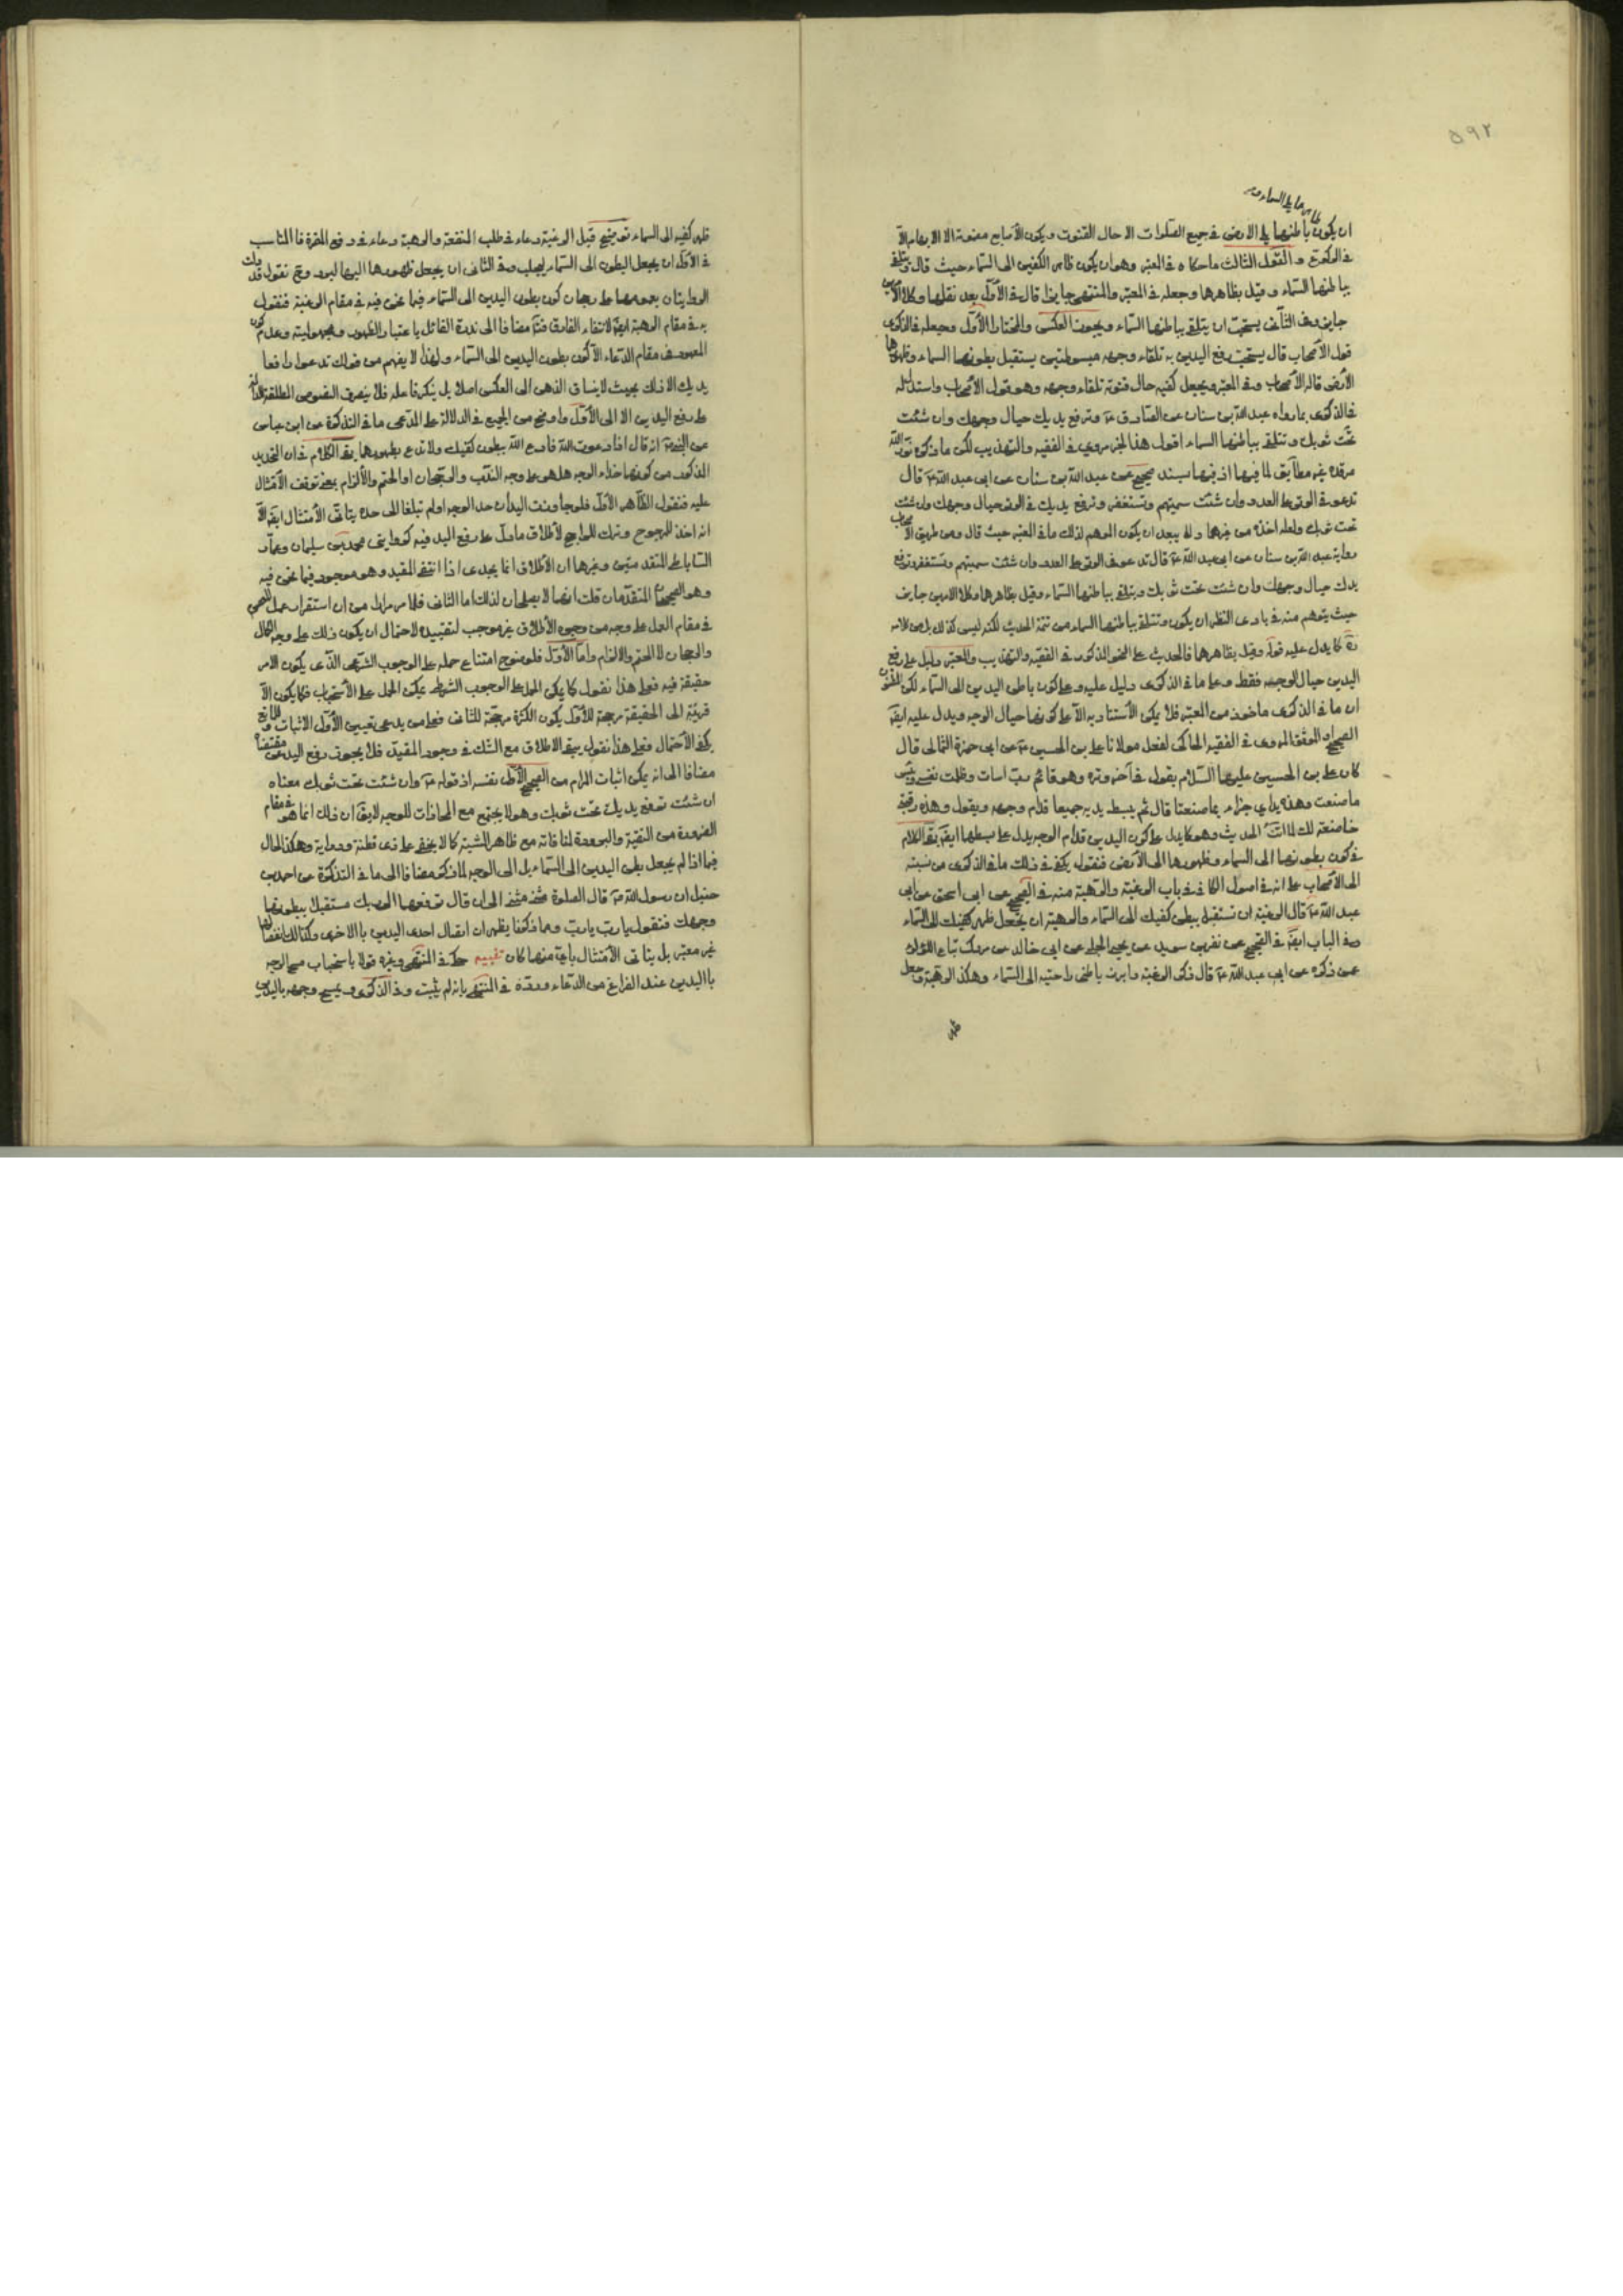 ٥٩٢
ظاهرهما يلي السماء و
ان يكون باطنهما يلي الارض في جميع الصلوات الا حال القنوت ويكون الأصابع مضمومة الا الابهام الا
في الركوع و القول الثالث ما حكاه في المعتبر وهو ان يكون ظاهر الكفين الى السماء حيث قال وتتلقى
بباطنهما السماء وقيل بظاهرهما وجعله في المعتبر والمنتهى جايزا قال في الأول بعد نقلهما وكلا الأمرين
جايز وفي الثاني يستحب ان يتلقى بباطنهما السماء ويجوز العكس والمختار الأول وجعله في الذكرى
قول الأصحاب قال يستحب رفع اليدين به تلقاء وجهه مبسوطتين يستقبل بطونهما السماء وظهورهما
الأرض قاله الأصحاب وفي المعتبر ويجعل كفيه حال قنوته تلقاء وجهه وهو قول الأصحاب واستدل له
في الذكرى بما رواه عبد الله بن سنان عن الصادق ع وترفع يديك حيال وجهك وان شئت
تحت ثوبك وتتلقى بباطنهما السماء اقول هذا الخبر مروي في الفقيه والتهذيب لكن ما ذكره نور الله
مرقده غير مطابق لما فيهما اذ فيهما بسند صحيح عن عبد الله بن سنان عن ابي عبد الله ع قال
تدعو في الوتر على العدو وان شئت سميتهم وتستغفر وترفع يديك في الوتر حيال وجهك وان شئت
تحت ثوبك ولعله اخذه من غيرهما ولا يبعد ان يكون الموهم لذلك ما في المعتبر حيث قال ومن طريق الأصحاب
رواية عبد الله بن سنان عن ابي عبد الله ع قال تدعو في الوتر على العدو وان شئت سميتهم وتستغفر وترفع
يدك حيال وجهك وان شئت تحت ثوبك ويتلقى بباطنهما السماء وقيل بظاهرهما وكلا الامرين جايز
حيث يتوهم منه في بادي النظر ان يكون وتتلقى بباطنهما السماء من تتمة الحديث لكنه ليس كذلك بل من كلامه
ره كما يدل عليه قوله وقيل بظاهرهما فالحديث على النحو المذكور في الفقيه والتهذيب والمعتبر دليل على رفع
اليدين حيال الوجه فقط وعلى ما في الذكرى دليل عليه وعلى كون باطن اليدين الى السماء لكن المظنون
ان ما في الذكرى ماخوذ من المعتبر فلا يمكن الأستناد به الا على كونهما حيال الوجه ويدل عليه ايضا
الصحيح او الموثق المروي في الفقيه الحاكي لفعل مولانا علي بن الحسين ع عن ابي حمزة الثمالي قال
كان علي بن الحسين عليهما السلام يقول في آخر وتره وهو قائم رب اسأت وظلمت نفسي وبئس
ما صنعت وهذه يداي جزاء بما صنعتا قال ثم يبسط يديه جميعا قدام وجهه ويقول وهذه رقبتي
خاضعة لك لما اتت الحديث وهو كما يدل على كون اليدين قدام الوجه يدل على بسطهما ايضا بقي الكلام
في كون بطونهما الى السماء وظهورهما الى الأرض فنقول يكفي في ذلك ما في الذكرى من نسبته
الى الأصحاب على انه في اصول الكافي في باب الرغبة والرهبة منه في الصحيح عن ابي اسحق عن ابي
عبد الله ع قال الرغبة ان تستقبل ببطن كفيك الى السماء والرهبة ان تجعل ظهر كفيك الى السماء
وفي الباب ايضا في الصحيح عن نضر بن سويد عن يحيى الحلبي عن ابي خالد عن مروك بياع اللؤلؤ
عمن ذكره عن ابي عبد الله ع قال ذكر الرغبة وابرز باطن راحتيه الى السماء وهكذا الرهبة وجعل
ظهر
ظهر كفيه الى السماء توضيح قبل الرغبة دعاء في طلب المنفعة والرهبة دعاء في دفع المضرة فالمناسب
في الأول ان يجعل البطون الى السماء ليجلب وفي الثاني ان يجعل ظهورهما اليها ليرد وح نقول قد دلت
الروايتان بعمومهما على رجحان كون بطون اليدين الى السماء فيما نحن فيه في مقام الرغبة فنقول
به في مقام الرهبة ايضا لانتفاء الفارق فتم مضافا الى ندرة القائل باعتبار الظهور ومجهوليته وعدم كون
المعهود في مقام الدعاء الا كون بطون اليدين الى السماء ولهذا لا يفهم من قولك تدعو رافعا
يديك الا ذلك بحيث لا ينساق الذهن الى العكس اصلا بل ينكر فاعله فلا ينصرف النصوص المطلقة الدالة
على رفع اليدين الا الى الأول واوضح من الجميع في الدلالة على المدعى ما في التذكرة عن ابن عباس
عن النبي ص انه قال اذا دعوت الله فادع الله ببطون كفيك ولا تدع بظهورهما بقي الكلام في ان التحديد
المذكور من كونهما حذاء الوجه هل هو على وجه الندب والرجحان او الحتم والألزام بمعنى توقف الأمتثال
عليه فنقول الظاهر الأول فلو جاوزت اليدان حد الوجه او لم تبلغا الى حده يتأتى الأمتثال ايضا الا
انه اخذ المرجوح وترك الراجح لأطلاق ما دل على رفع اليد فيه كروايتي محمد بن سليمان وعمار
الساباطي المتقدمتين وغيرهما ان الأطلاق انما يجدي اذا انتفى المقيد وهو موجود فيما نحن فيه
وهو الصحيحان المتقدمان قلت انهما لا يصلحان لذلك اما الثاني فلما مر مرارا من ان استقرار عمل المعصوم
في مقام العمل على وجه من وجوه الأطلاق غير موجب لتقييده لاحتمال ان يكون ذلك على وجه الكمال
والرجحان لا الحتم والالزام واما الأول فلوضوح امتناع حمله على الوجوب الشرعي الذي يكون الامر
حقيقة فيه فعلى هذا نقول كما يمكن الحمل على الوجوب الشرطي يمكن الحمل على الأستحباب فكما يكون الأ
قربية الى الحقيقة مرجحة للأول يكون الكثرة مرجحة للثاني فعلى من يدعي تعيين الأول الاثبات والمانع
يكفيه الأحتمال فعلى هذا نقول يبقى الاطلاق مع الشك في وجود المقيد فلا يجوز رفع اليد عن مقتضاه
مضافا الى انه يمكن اثبات المرام من الصحيح الأول بنفسه اذ قوله ع وان شئت تحت ثوبك معناه
ان شئت ترفع يديك تحت ثوبك وهو لا يجتمع مع المحاذات للوجه لا يقال ان ذلك انما هو في مقام
الضرورة من التقية والبرودة لمنافاته مع ظاهر المشية كما لا يخفى على ذي فطنة ودراية وهكذا الحال
فيما اذا لم يجعل بطن اليدين الى السماء بل الى الوجه لما ذكر مضافا الى ما في التذكرة عن احمد بن
حنبل ان رسول الله ص قال الصلوة مثنى مثنى الى ان قال ترفعهما الى ربك مستقبلا ببطونهما
وجهك فتقول يا رب يا رب ومما ذكرنا يظهر ان اتصال احدى اليدين بالاخرى وكذا انفصالهما
غير معتبر بل يتأتى الأمتثال بأي منهما كان تنبيه حكى في المنتهى وغيره قولا باستحباب مسح الوجه
بااليدين عند الفراغ من الدعاء ورده في المنتهى بانه لم يثبت وفي الذكرى ويمسح وجهه باليدين